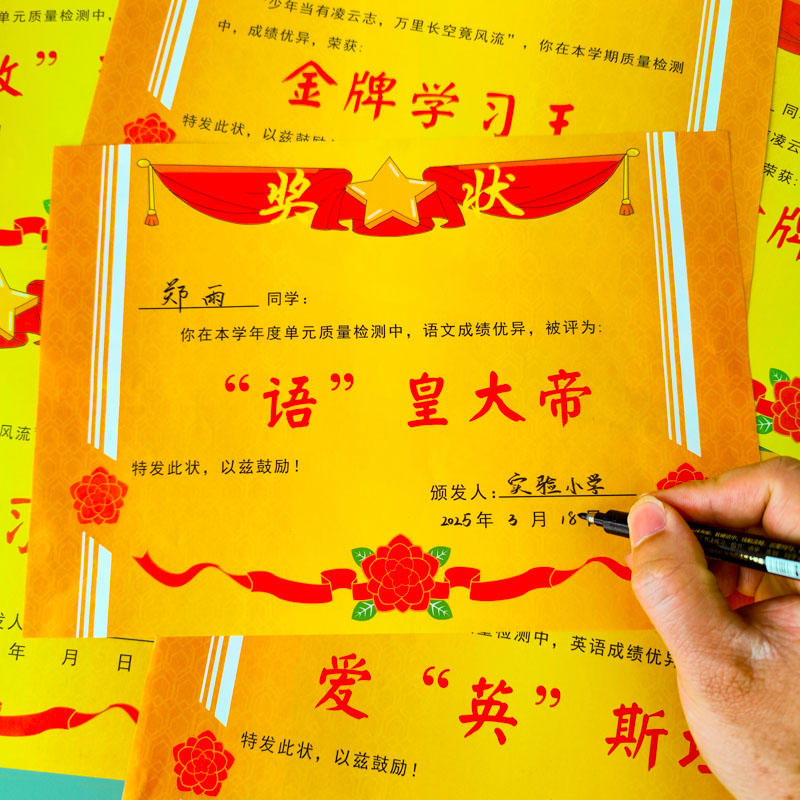 单元质量检测中,
”
“少年当有凌云志，万里长空竞风流”，你在本学期质量检测
中，成绩优异，荣获:
金牌学习王
特发此状，以兹鼓励
同
凌云
荣获:
金牌
奖 状
郑雨 同学:
你在本学年度单元质量检测中，语文成绩优异，被评为:
“语” 皇大帝
特发此状，以兹鼓励！
颁发人: 实验小学
2025年 3 月 18日
风流”
习
发人
年 月 日
检测中，英语成绩优异
爱 “英” 斯坦
特发此状，以兹鼓励！